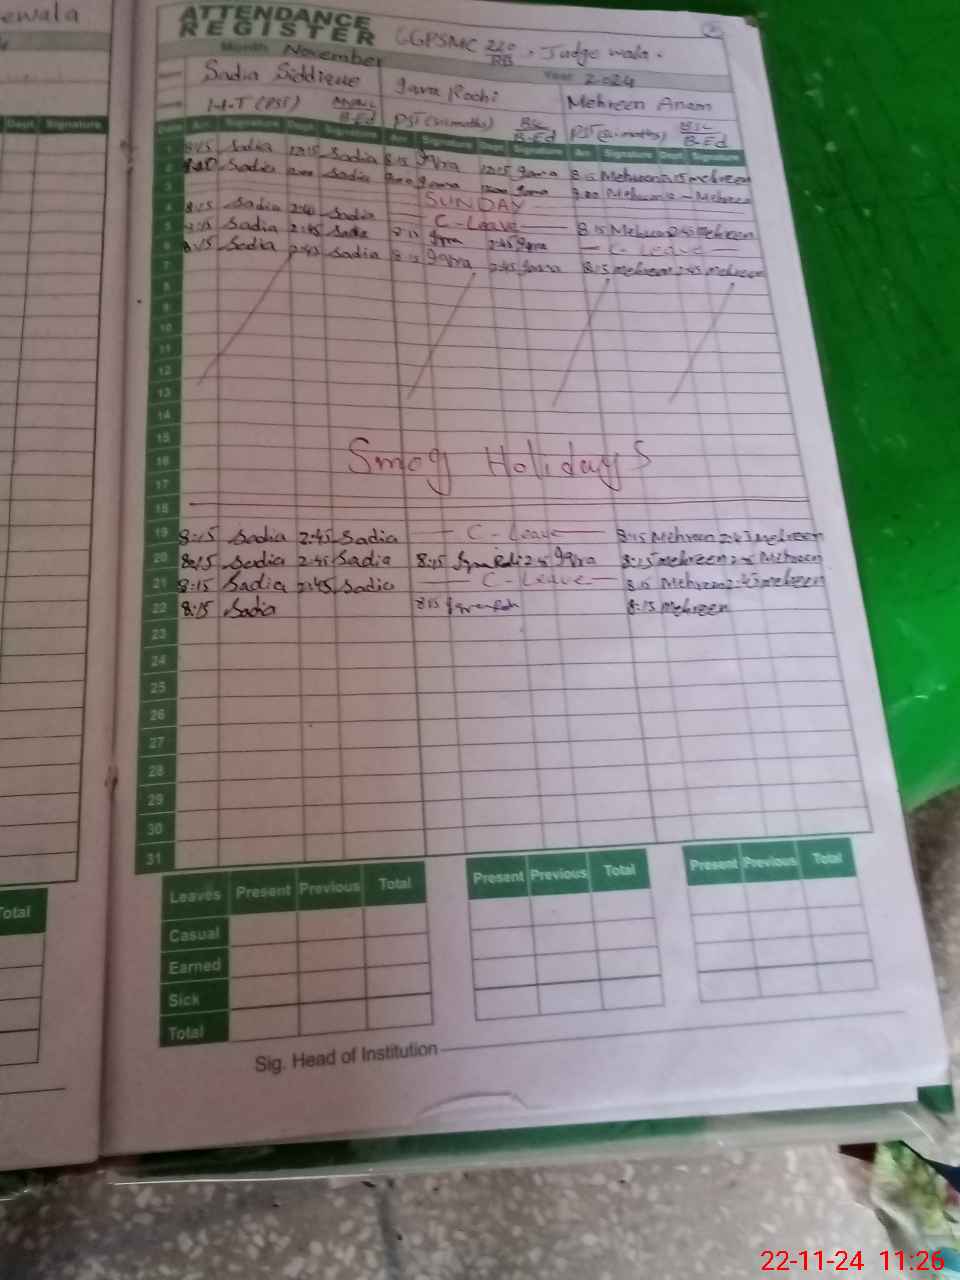 ewala
ATTENDANCE
REGISTER
GGPSMC 220/RB, Judge wala.
Month November Year 2024
Sadia Siddique Iqra Roohi Mehreen Anam
H-T (PST) B-Ed PST (Sci maths) BSc B-Ed PST (Sci maths) BSc B-Ed
Dept. Signature
Date Arr. Signature Dept. Signature Arr. Signature Dept. Signature Arr. Signature Dept. Signature
1 8:15 Sadia 12:15 Sadia 8:15 Iqra 12:15 Iqra 8:15 Mehreen 12:15 mehreen
2 Sadia Sadia 9:00 Iqra 12:00 Iqra 9:00 Mehreen Mehreen
3 SUNDAY
4 8:15 Sadia 2:45 Sadia C-Leave 8:15 Mehreen 2:45 Mehreen
5 8:15 Sadia 2:45 Sadia 8:15 Iqra 2:45 Iqra C-Leave
6 8:15 Sadia 2:45 Sadia 8:15 Iqra 2:45 Iqra 8:15 mehreen 2:45 mehreen
7
8
9
10
11
12
13
14
15
16 Smog Holidays
17
18
19 8:15 Sadia 2:45 Sadia C-Leave 8:15 Mehreen 2:45 Mehreen
20 8:15 Sadia 2:45 Sadia 8:15 Iqra 2:45 Iqra 8:15 mehreen 2:45 Mehreen
21 8:15 Sadia 2:45 Sadia C-Leave 8:15 Mehreen 2:45 mehreen
22 8:15 Sadia 8:15 8:15 Mehreen
23
24
25
26
27
28
29
30
31
Leaves Present Previous Total Present Previous Total Present Previous Total
Total
Casual
Earned
Sick
Total
Sig. Head of Institution
22-11-24 11:26